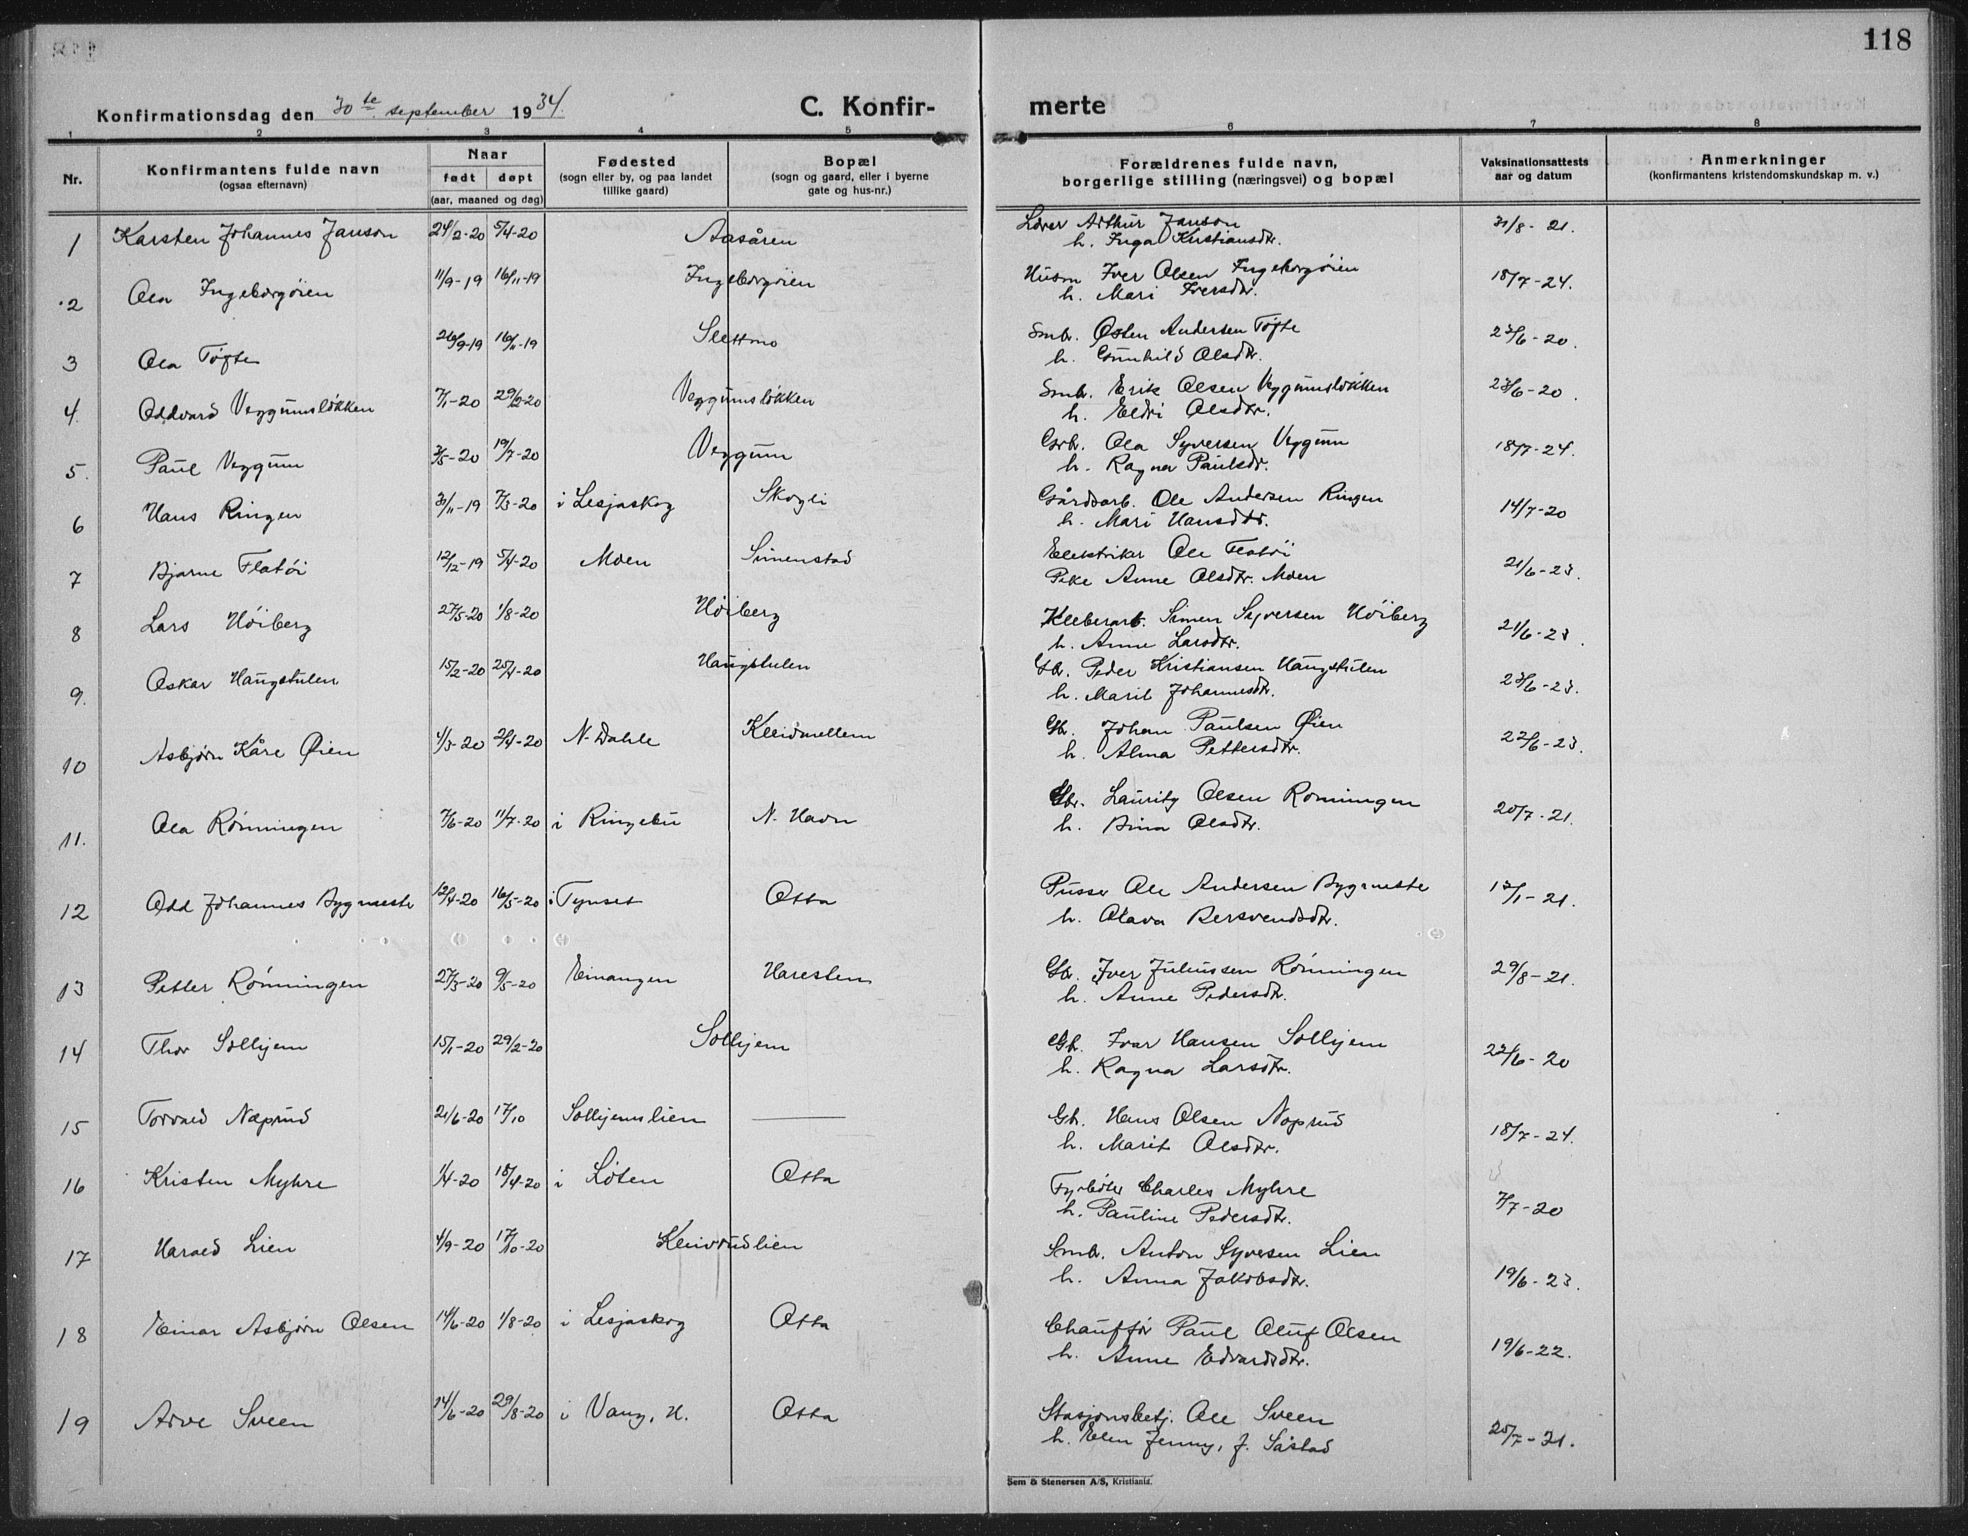 118
Konfirmationsdag den 30te september 1934.
C. Konfir-
merte
1 2 3 4 5 6 7 8
Nr.
Konfirmantens fulde navn
(ogsaa efternavn)
Naar
født døpt
(aar, maaned og dag)
Fødested
(sogn eller by, og paa landet
tillike gaard)
Bopæl
(sogn og gaard, eller i byerne
gate og hus-nr.)
Forældrenes fulde navn,
borgerlige stilling (næringsvei) og bopæl
Vaksinationsattests
aar og datum
Anmerkninger
(konfirmantens kristendomskundskap m. v.)
1 Karsten Johannes Janson 24/2-20 5/4-20 Aasåren Lærer Arthur Janson 31/8-21.
h. Inga Kristiansdtr.
2 Ola Ingeborgøien 11/9-19 16/11-19 Ingeborgøien Husm Iver Olsen Ingeborgøien 18/7-24.
h. Mari Iversdtr.
3 Ola Tøfte 26/9-19 16/11-19 Slettmo Smbr. Østen Andersen Tøfte 23/6-20.
h. Gunhild Olsdtr.
4. Oddvard Veggumsløkken 7/1-20 29/2-20 Veggumsløkken Smbr. Erik Olsen Veggumsløkken 23/6-20.
h. Eldri Olsdtr.
5. Paul Veggum 3/5-20 19/7-20 Veggum Gbr. Ola Syversen Veggum 18/7-24.
h. Ragna Paulsdr.
6 Hans Ringen 30/11-19 7/3-20 i Lesjaskog Skogli Gårdsarb. Ole Andersen Ringen 14/7-20
h. Mari Hansdtr.
7 Bjarne Flatøi 12/12-19 5/4-20 Moen Simenstad Elektriker Ole Flatøi 21/6-23.
Pike Anne Olsdtr. Moen
8 Lars Høiberg 27/5-20 1/8-20 Høiberg Kleberarb. Simen Syversen Høiberg 21/6-23.
h. Anne Larsdtr.
9. Oskar Haugstulen 15/2-20 25/4-20 Haugstulen Gbr. Peder Kristiansen Haugstulen 23/6-23.
h. Marit Johannesdtr.
10 Asbjørn Kåre Øien 4/3-20 2/4-20 N. Dahle Kleivmellem Gbr. Johan Paulsen Øien 22/6-23.
h. Alma Pettersdtr.
11. Ola Rønningen 7/6-20 11/7-20 i Ringebu N. Havn Gbr. Lauritz Olsen Rønningen 20/7-21.
h. Dina Olsdtr.
12 Odd Johannes Bygmester 12/4-20 16/5-20 i Tynset Otta Pusser Ole Andersen Bygmester 12/1-21.
h. Olava Bersvendsdtr.
13 Petter Rønningen 27/3-20 9/5-20 Einangen Haresten Gbr. Iver Juliussen Rønningen 29/8-21.
h. Anne Pedersdtr.
14 Thor Solhjem 15/1-20 29/2-20 Solhjem Gbr. Ivar Hansen Solhjem 22/6-20
h. Ragna Larsdtr.
15 Torvald Næprud 21/6-20 17/10 Solhjemslien — Gbr. Hans Olsen Næprud 18/7-24.
h. Marit Olsdtr.
16 Kristen Myhre 1/4-20 18/4-20 i Løten Otta Fyrbøter Charles Myhre 7/7-20
h. Pauline Pedersdtr.
17 Harald Lien 4/9-20 17/10-20 Kleivrudlien Smbr. Anton Syversen Lien 19/6-23.
h. Anna Jakobsdtr.
18 Einar Asbjørn Olsen 14/6-20 1/8-20 i Lesjaskog Otta Chauffør Paul Oluf Olsen 19/6-22.
h. Anne Edvardsdtr.
19 Arve Sveen 14/6-20 29/8-20 i Vang, H. Otta Stasjonsbetj. Ole Sveen 20/7-21.
h. Elen Jenny, J. Såstad
Sem & Stenersen A/S, Kristiania.